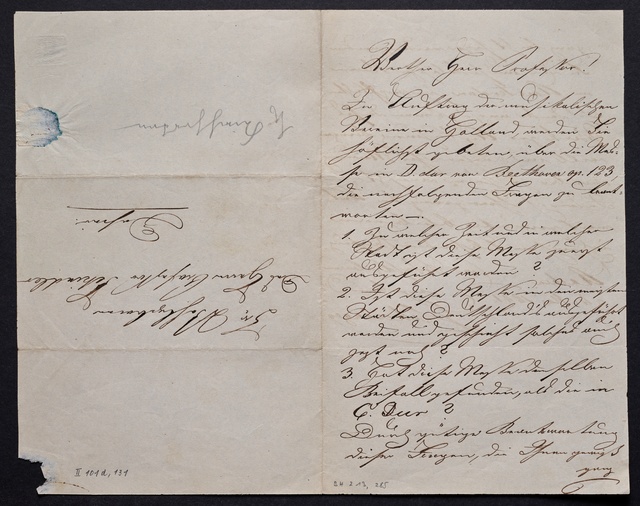 Werther Herr Professor!
Im Auftrag der musikalischen
Vereine in Holland, werden Sie
höflichst gebeten, über die Mes-
se in D dur von Beethoven op. 123,
die nachfolgenden Fragen zu beant-
worten —.
1. Zu welcher Zeit und in welcher
Stadt ist diese Messe zuerst
aufgeführt worden?
2. Ist diese Messe in den meisten
Städten Deutschlands aufgeführt
worden und geschieht solches auch
jetzt noch?
3. Hat diese Messe denselben
Beifall gefunden, als die in
C. Dur?
Durch gütige Beantwortung
dieser Fragen, die Ihnen gewiß
ganz
Sr. Wohlgeboren
Dem Herrn Professor Schindler
Dahier.
II 101d, 131
BH 213, 285